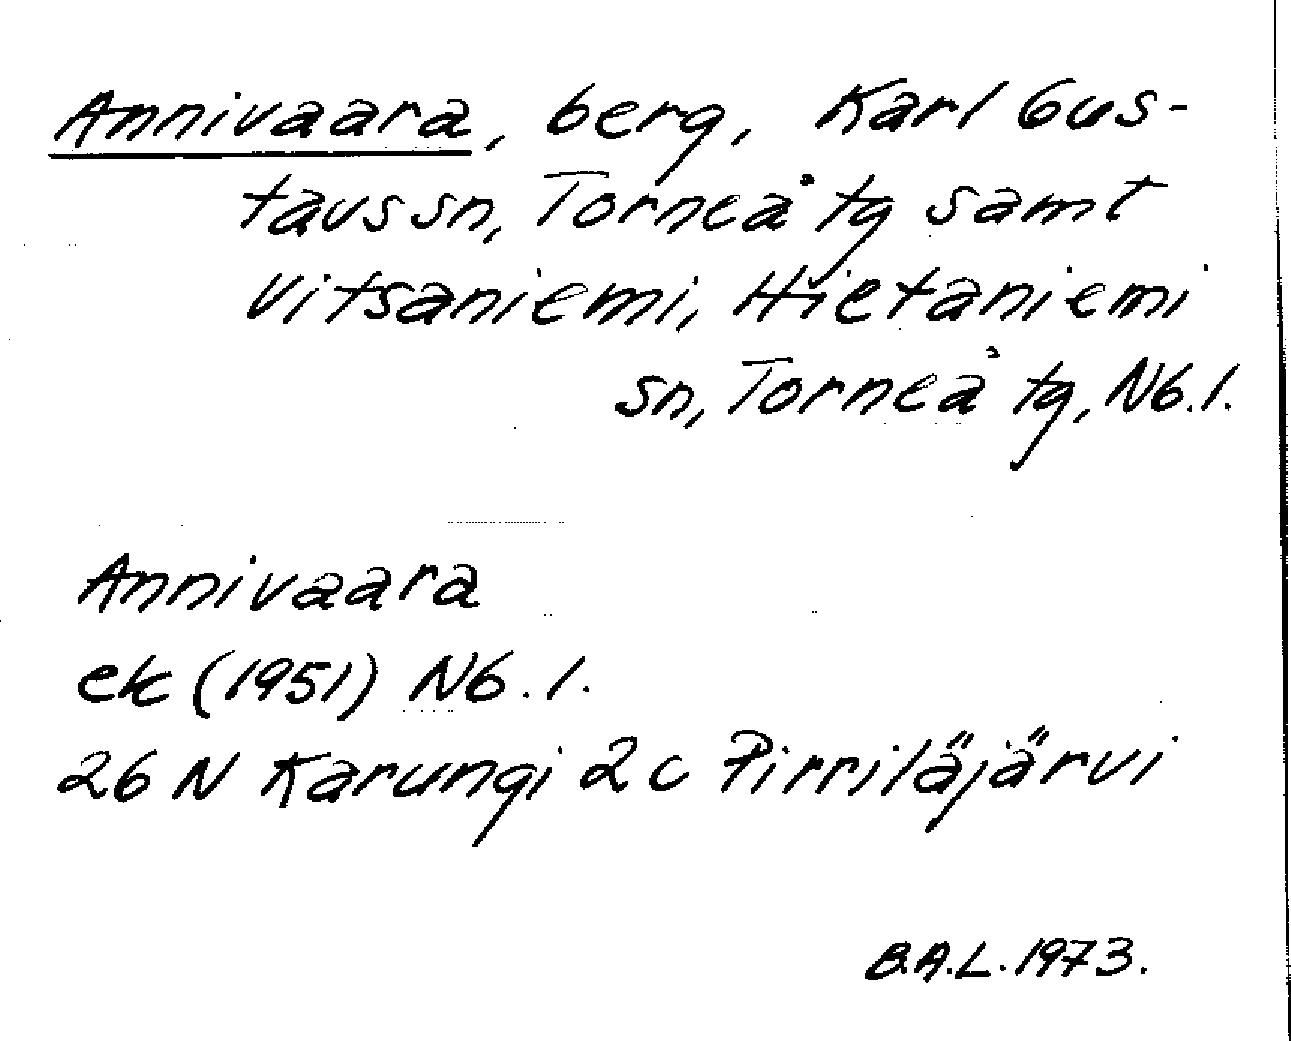 Annivaara, berg, Karl Gus-
tavs sn, Torneå tg samt
Vitsaniemi, Hietaniemi
sn, Torneå tg, Nb.l.
Annivaara
ek (1951) Nb.l.
26 N Karungi 2c Pirriläjärvi
B.A.L. 1973.